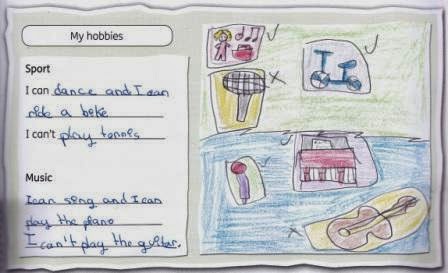 My hobbies
Sport
I can dance and I can
ride a bike
I can't play tennis
Music
I can song and I can
play the piano
I can't play the guitar.